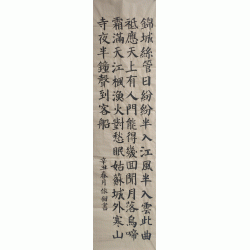 錦城絲管日紛紛半入江風半入雲此曲
祗應天上有人間能得幾回聞月落烏啼
霜滿天江楓漁火對愁眠姑蘇城外寒山
寺夜半鐘聲到客船
辛丑春月 書